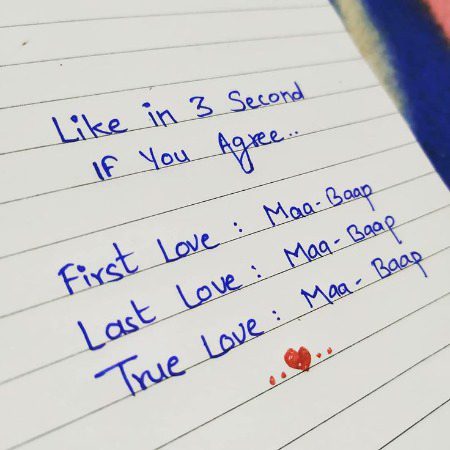 Like in 3 Second
IF You Agree..
First Love : Maa-Baap
Last Love : Maa-Baap
True Love : Maa-Baap